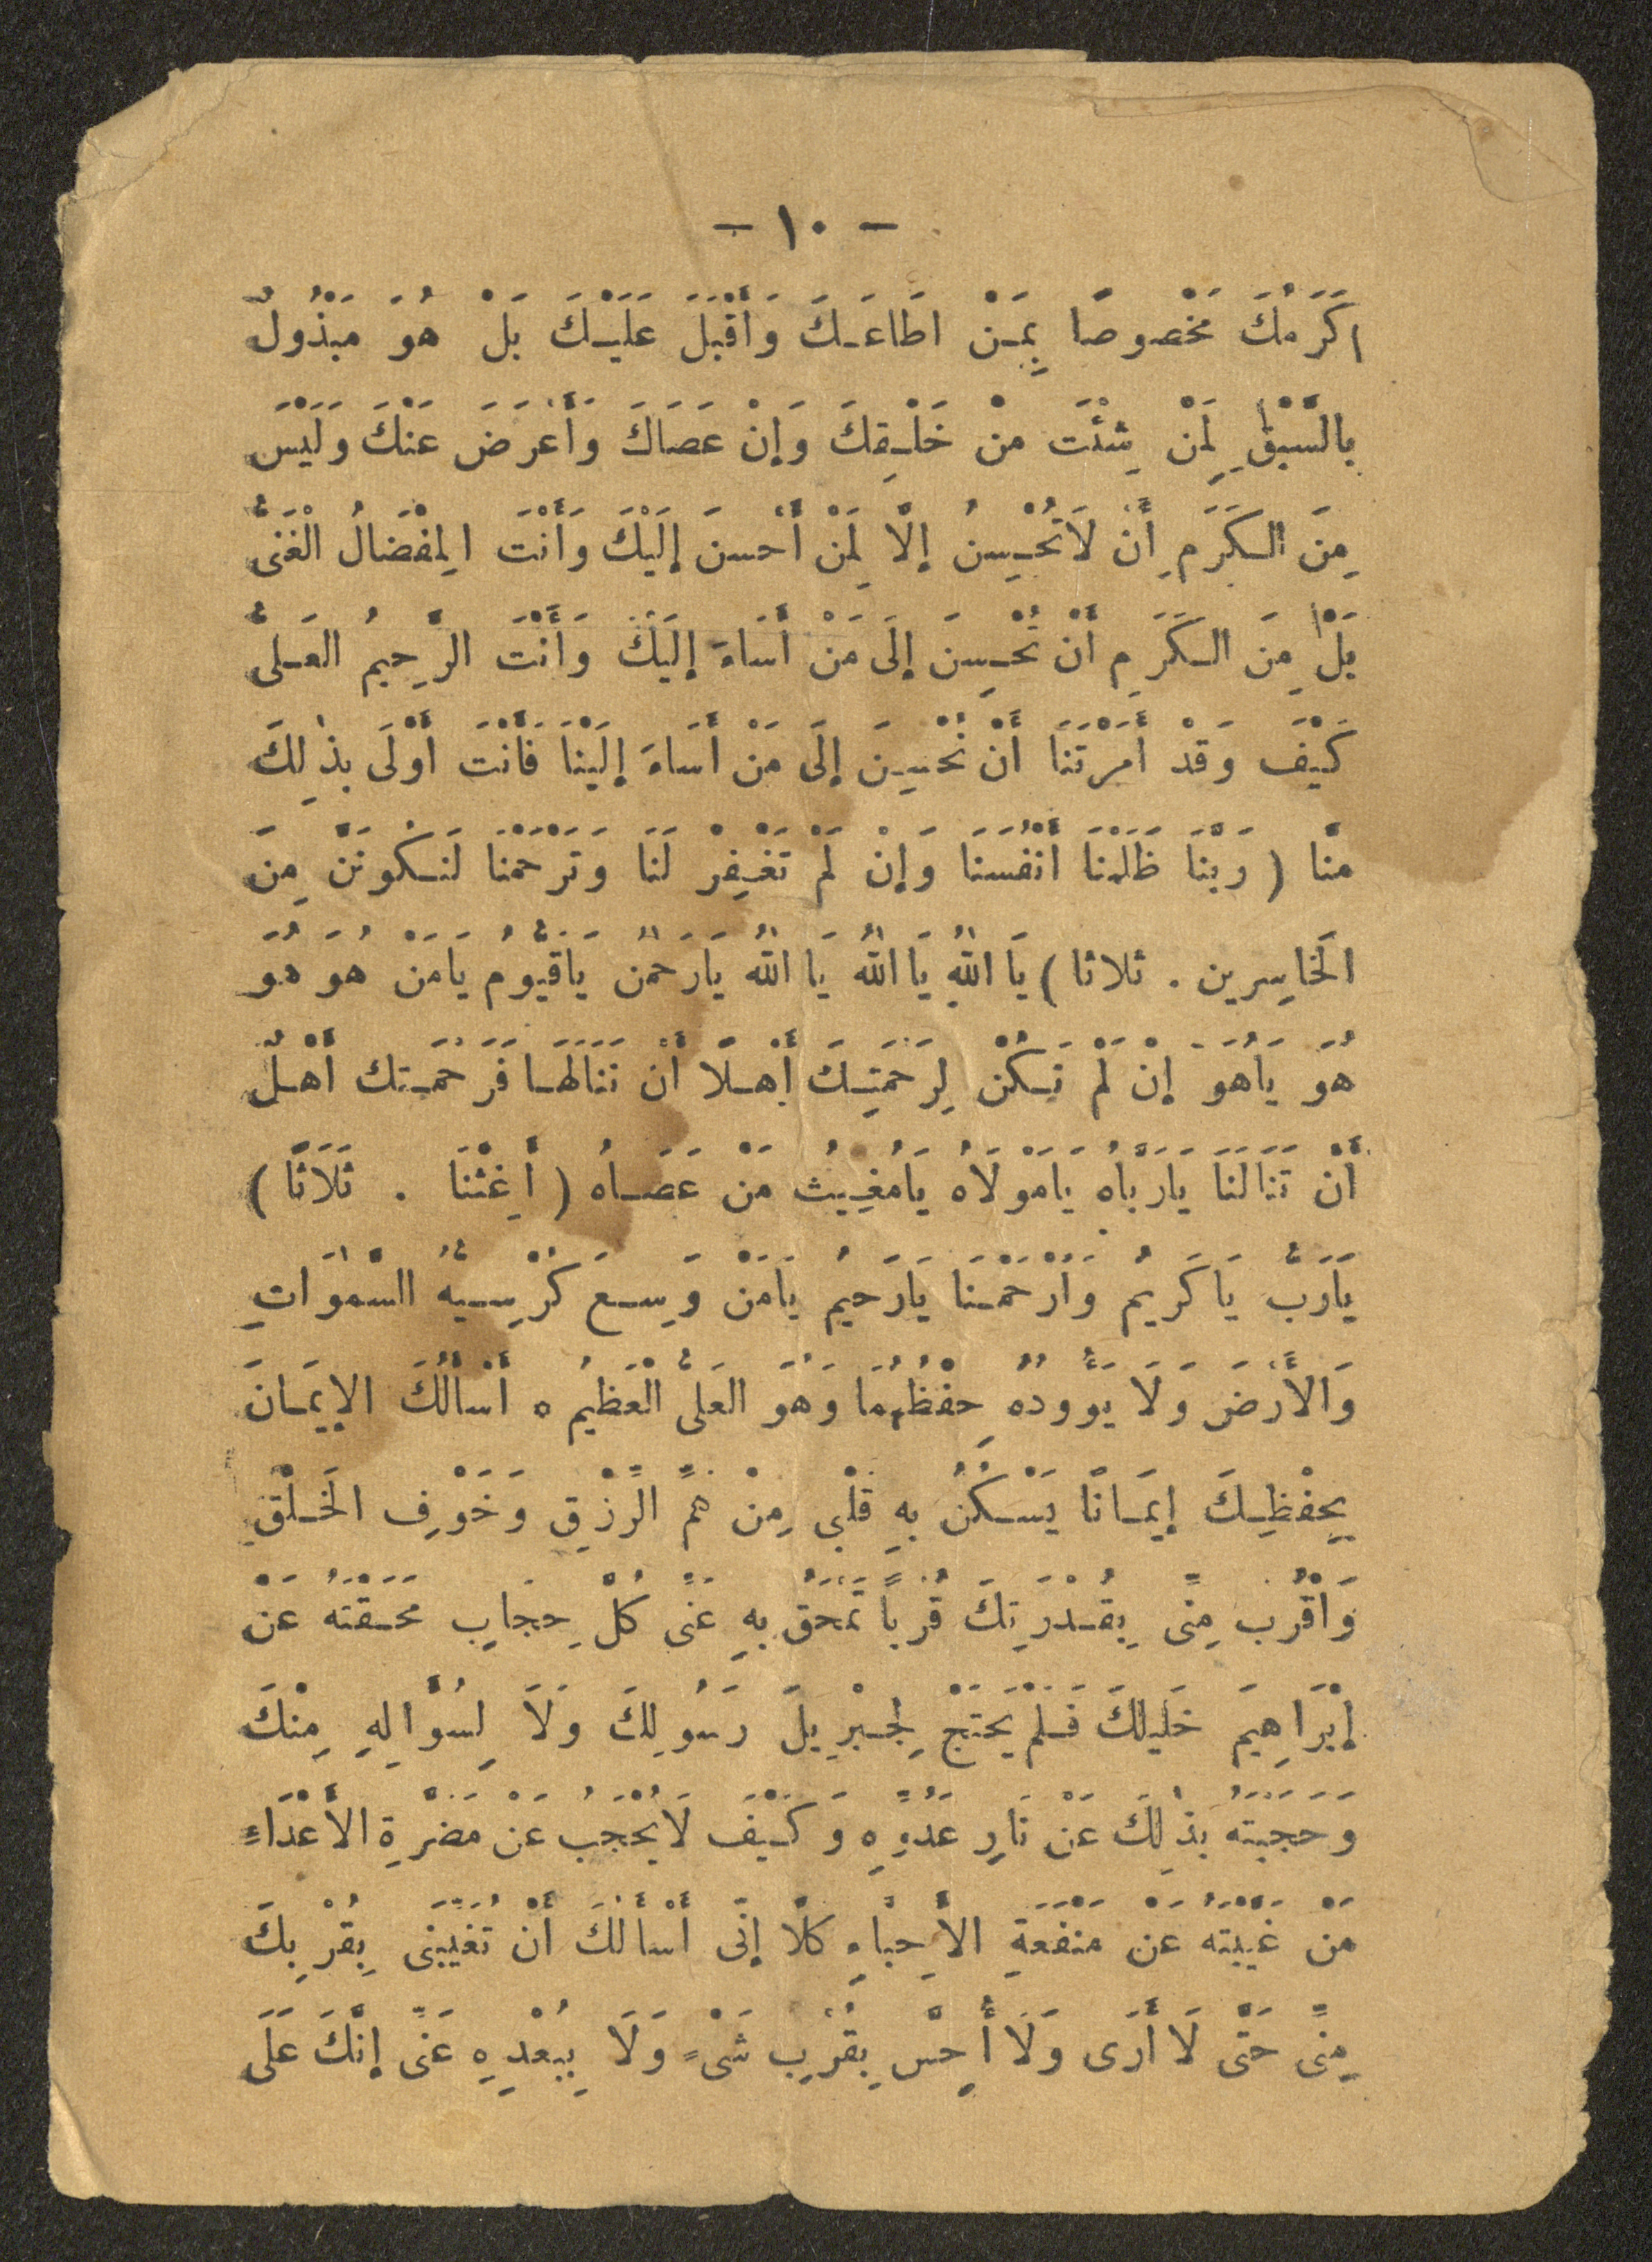 - ١٠ -
اكَرَمُكَ مَخْصوصًا بِمَنْ اطَاعَكَ وَأَقْبَلَ عَلَيْكَ بَلْ هُوَ مَبْذُولٌ
بالسَّبْقِ لِمَنْ شِئْتَ منْ خَلْقِكَ وَإِنْ عَصَاكَ وَأَعْرَضَ عَنْكَ وَلَيْسَ
مِنَ الكَرَمِ أَنْ لَا تُحْسِنُ إلَّا لِمَنْ أَحْسنَ إلَيْكَ وَأَنْتَ المِفْضَالُ الْغَنىُّ
بَلْ مِنَ الكَرَمِ أَنْ تُحْسِنَ إلَى مَنْ أَسَاءَ إلَيْكَ وَأَنْتَ الرَّحِيمُ العَلىُّ
كَيْفَ وَقَدْ أَمَرْتَنَا أَنْ نُحْسِنَ إلَى مَنْ أَسَاءَ إلَيْنَا فَأَنْتَ أَوْلَى بذٰلِكَ
منَّا ( رَبَّنَا ظَلَمْنَا أَنْفُسَنَا وَإنْ لَمْ تَغْفِرْ لَنَا وَتَرْحَمْنَا لَنَكُونَنَّ مِنَ
الَخاسِرين . ثلاثا ) يَا اللهُ يَا اللهُ يَا اللهُ يَارَحْمٰنُ يَاقَيُّومُ يَامَنْ هُوَ هُوَ
هُوَ يَاهُوَ إنْ لَمْ نَكُنْ لِرَحْمَتِكَ أَهْلًا أَنْ نَنَالَهَا فَرَحْمَتُك أَهْلٌ
أَنْ تَنَالَنَا يَارَبَّاهُ يَامَوْلَاهُ يَامُغِيثُ مَنْ عَصَاهُ ( أَغِثْنَا . ثَلَاثًا )
يَارَبُّ يَا كَرَيمُ وَارْحَمْنَا يَارَحيمُ يَامَنْ وَسِعَ كُرْسِيُّهُ السَّمٰوَاتِ
وَالأَرْضَ وَلَا يَؤُودُهُ حِفْظُهُمَا وَهُوَ العَلىُّ الْعَظيمُ ه أَسْأَلُكَ الإيمَانَ
بِحِفْظِكَ إيمَانًا يَسْكُنُ بِهِ قَلْبِى مِنْ هَمِّ الرِّزْقِ وَخَوْفِ الَخلْقِ
وَاقْرُب مِنِّى بِقُدْرَتِكَ قُرْباً تَمْحَقُ بِهِ عَنِّى كُلَّ حِجَابٍ مَحَقْتَهُ عَنْ
إبْرَاهِيمَ خَليلكَ فَلَمْ يَحْتَجْ لِجِبْرِيلَ رَسُولِكَ وَلَا لِسُؤَالِهِ مِنْكَ
وَحَجَبْتَهُ بذٰلِكَ عَنْ نَارِ عَدُوِّهِ وَكَيْفَ لَا يُحْجَبُ عَنْ مَضَرَّةِ الأَعْدَاءِ
مَنْ غَيَّبْتَهُ عَنْ مَنْفَعَةِ الأَحِبَّاءِ كلَّا إنِّى أَسْأَلُكَ أَنْ تُغَيِّبَنِى بِقُرْبِكَ
مِنِّى حَتَّى لَا أَرَى وَلَا أُحِسَّ بِقُرْبِ شَىْءٍ وَلَا بِبُعْدِهِ عَنِّى إنَّكَ عَلَى